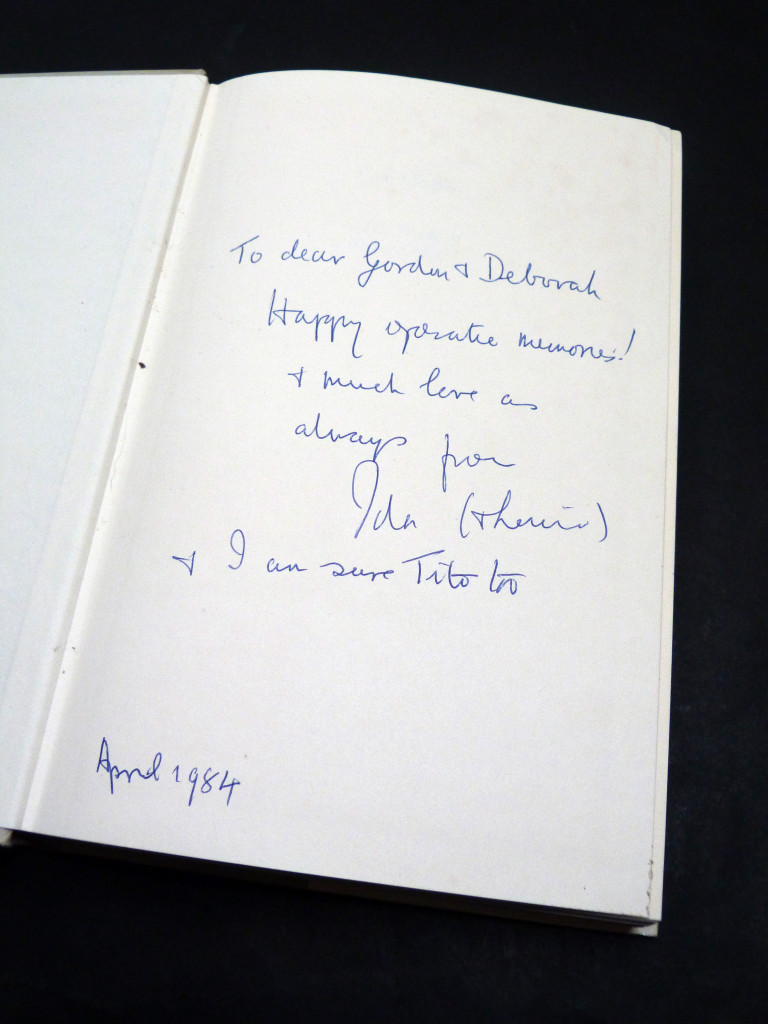 To dear Gordon & Deborah
Happy operatic memories!
& much love as
always from
Ida (& Louis)
& I am sure Tito too
April 1984